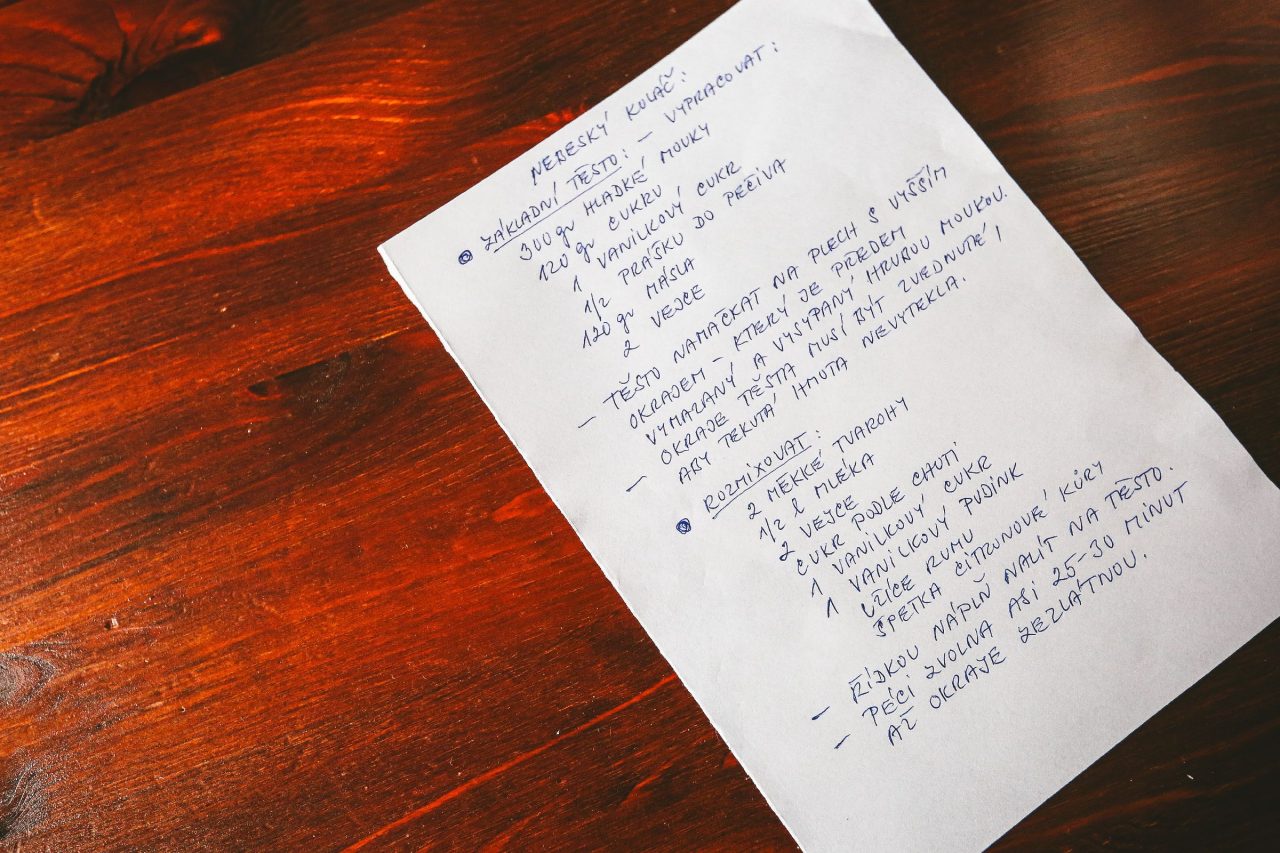 NEBESKÝ KOLÁČ:
ZÁKLADNÍ TĚSTO: - VYPRACOVAT:
300 gr HLADKÉ MOUKY
120 gr CUKRU
1 VANILKOVÝ CUKR
1/2 PRÁŠKU DO PEČIVA
120 gr MÁSLA
2 VEJCE
- TĚSTO NAMAČKAT NA PLECH S VYŠŠÍM
OKRAJEM - KTERÝ JE PŘEDEM
VYMAZANÝ A VYSYPANÝ HRUBOU MOUKOU.
- OKRAJE TĚSTA MUSÍ BÝT ZVEDNUTÉ,
ABY TEKUTÁ HMOTA NEVYTEKLA.
ROZMIXOVAT:
2 MĚKKÉ TVAROHY
1/2 l MLÉKA
2 VEJCE
CUKR PODLE CHUTI
1 VANILKOVÝ CUKR
1 VANILKOVÝ PUDINK
LŽÍCE RUMU
ŠPETKA CITRONOVÉ KŮRY
- ŘÍDKOU NÁPLŇ NALÍT NA TĚSTO.
- PÉCI ZVOLNA ASI 25-30 MINUT
AŽ OKRAJE ZEZLÁTNOU.